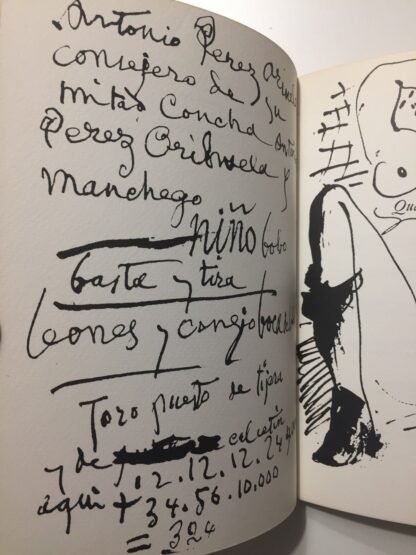 Antonio Perez
consejero de su
mitad Concha
Perez Orihuela y
Manchego
niño bobo
basta y tira
leones y conejo
Toro puesto de
y de calcetin
aqui + 12.12.12.24
34.56.10.000
= 324
Qua